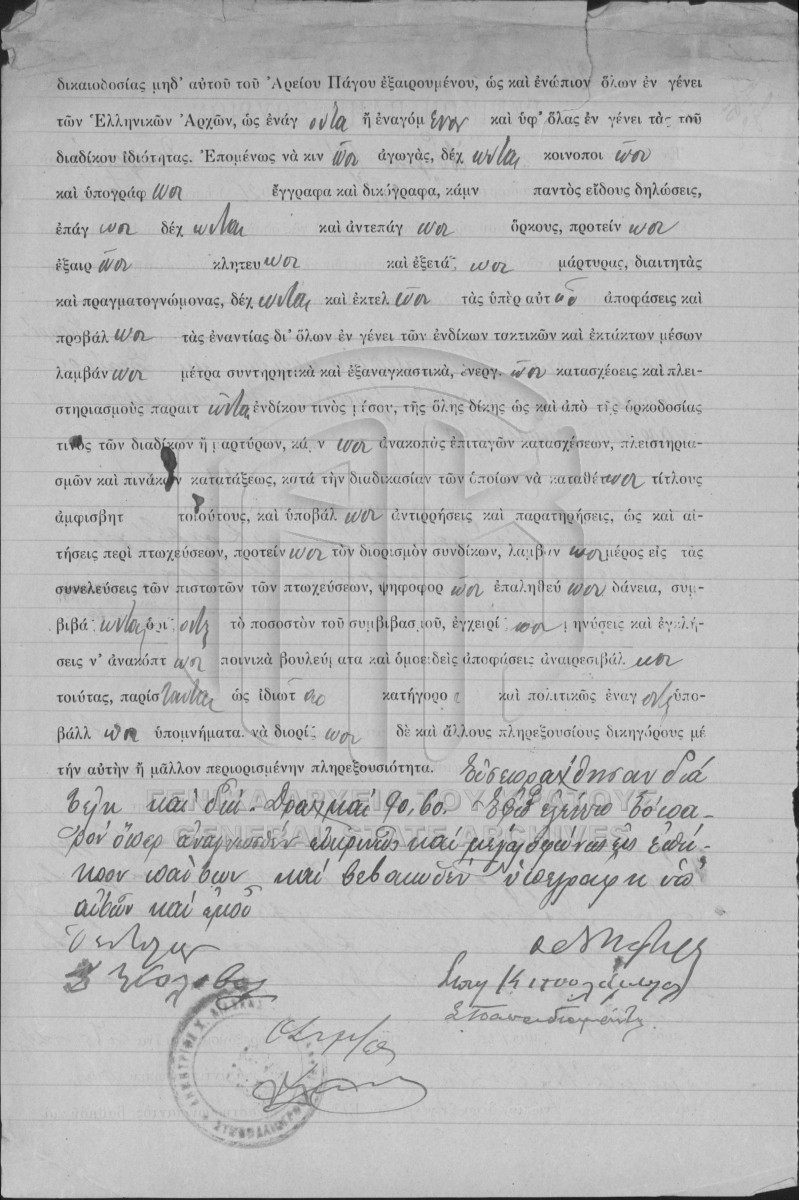 δικαιοδοσίας μηδ' αὐτοῦ τοῦ Ἀρείου Πάγου ἐξαιρουμένου, ὡς καὶ ἐνώπιον ὅλων ἐν γένει
τῶν Ἑλληνικῶν Ἀρχῶν, ὡς ἐνάγ οντα ἢ ἐναγόμ ενον καὶ ὑφ' ὅλας ἐν γένει τὰς τοῦ
διαδίκου ἰδιότητας. Ἑπομένως νὰ κιν ῶσι ἀγωγάς, δέχ ωνται κοινοποι ῶσι
καὶ ὑπογράφ ωσι ἔγγραφα καὶ δικόγραφα, κάμν παντὸς εἴδους δηλώσεις,
ἐπάγ ωσι δέχ ωνται καὶ ἀντεπάγ ωσι ὅρκους, προτείν ωσι
ἐξαιρ ῶσι κλητευ ωσι καὶ ἐξετάζ ωσι μάρτυρας, διαιτητὰς
καὶ πραγματογνώμονας, δέχ ωνται καὶ ἐκτελ ῶσι τὰς ὑπὲρ αὐτ οῦ ἀποφάσεις καὶ
προβάλ ωσι τὰς ἐναντίας δι' ὅλων ἐν γένει τῶν ἐνδίκων τακτικῶν καὶ ἐκτάκτων μέσων
λαμβάν ωσι μέτρα συντηρητικὰ καὶ ἐξαναγκαστικά, ἐνεργ ῶσι κατασχέσεις καὶ πλει-
στηριασμοὺς παραιτ ῶνται ἐνδίκου τινὸς μέσου, τῆς ὅλης δίκης ὡς καὶ ἀπὸ τῆς ὁρκοδοσίας
τινὸς τῶν διαδίκων ἢ μαρτύρων, κάμν ωσι ἀνακοπὰς ἐπιταγῶν κατασχέσεων, πλειστηρια-
σμῶν καὶ πινάκων κατατάξεως, κατὰ τὴν διαδικασίαν τῶν ὁποίων νὰ καταθέτ ωσι τίτλους
ἀμφισβητ τοιούτους, καὶ ὑποβάλ ωσι ἀντιρρήσεις καὶ παρατηρήσεις, ὡς καὶ αἰ-
τήσεις περὶ πτωχεύσεων, προτείν ωσι τὸν διορισμὸν συνδίκων, λαμβάν ωσι μέρος εἰς τὰς
συνελεύσεις τῶν πιστωτῶν τῶν πτωχεύσεων, ψηφοφορ ῶσι ἐπαληθεύ ωσι δάνεια, συμ-
βιβάζ ωνται ὁρίζ οντες τὸ ποσοστὸν τοῦ συμβιβασμοῦ, ἐγχειρίζ ωσι μηνύσεις καὶ ἐγκλή-
σεις ν' ἀνακόπτ ωσι ποινικὰ βουλεύματα καὶ ὁμοειδεῖς ἀποφάσεις ἀναιρεσιβάλ ωσι
τοιύτας, παρίσ τανται ὡς ἰδιωτ κατήγορο ι καὶ πολιτικῶς ἐναγ οντες ὑπο-
βάλλ ωσι ὑπομνήματα. νὰ διορίζ ωσι δὲ καὶ ἄλλους πληρεξουσίους δικηγόρους μὲ
τὴν αὐτὴν ἢ μᾶλλον περιορισμένην πληρεξουσιότητα. Εἰσεπράχθησαν διὰ
τέλη καὶ δι. Δραχμαὶ 90.60. Ἐφ' ᾧ
ὅπερ ἀναγνωσθὲν εὐκρινῶς καὶ μεγαλοφώνως εἰς ἐπή-
κοον πάντων καὶ βεβαιωθὲν ὑπεγράφη ὑπ'
αὐτῶν καὶ ἐμοῦ
ΓΕΝΙΚΑ ΑΡΧΕΙΑ ΤΟΥ ΚΡΑΤΟΥΣ
GENERAL STATE ARCHIVES